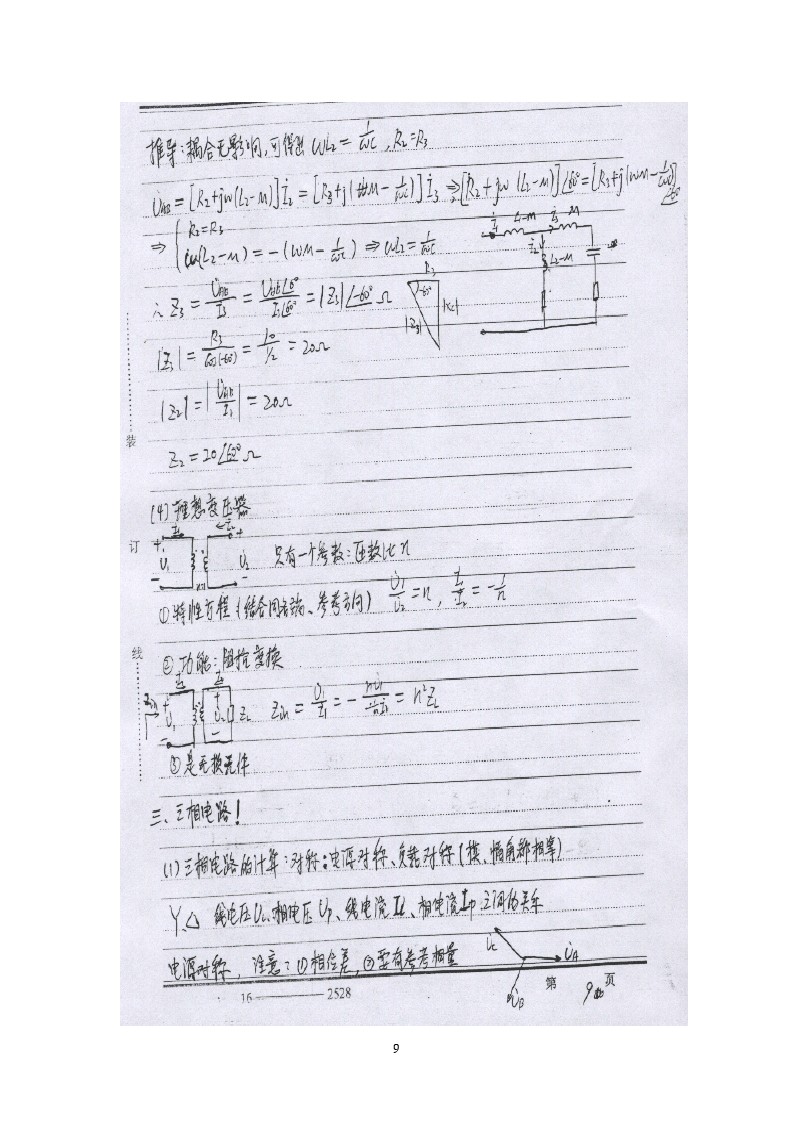 推导:耦合无影响,可得出 ωL₂ = 1/ωC , R₂=R₃
U̇AB = [R₂+jω(L₂-M)]İ₂ = [R₃+j(ωM - 1/ωC)]İ₃ ⇒ [R₂+jω(L₂-M)]∠60° = [R₃+j(ωM - 1/ωC)]
⇒ { R₂=R₃
ω(L₂-M) = -(ωM - 1/ωC) ⇒ ωL₂ = 1/ωC
L₂-M
∴ Z₃ = U̇AB/İ₃ = UAB∠0°/I₃∠60° = |Z₃|∠-60° Ω
R₃
-60°
|Z₃|
|Z₃| = R₃/cos(-60°) = 10/½ = 20Ω
|Z₂| = |U̇AB/I₂| = 20Ω
Z₂ = 20∠60° Ω
装
(4) 理想变压器
订
+ U̇₁ - + U̇₂ - n:1
只有一个参数:匝数比 n
① 特性方程(结合同名端、参考方向) U̇₁/U̇₂ = n , İ₁/İ₂ = -1/n
线
② 功能:阻抗变换
Zin + U̇₁ - + U̇₂ - ZL
Zin = U̇₁/İ₁ = - nU̇₂/(1/n)İ₂ = n²ZL
③ 是无损元件
三、三相电路!
(1) 三相电路的计算:对称:电源对称、负载对称(模、幅角都相等)
Y、△ 线电压UL、相电压Up、线电流IL、相电流Ip之间的关系
电源对称, 注意:①相位差,②要有参考相量
U̇C
U̇A
U̇B
16————2528
第 9 页
9